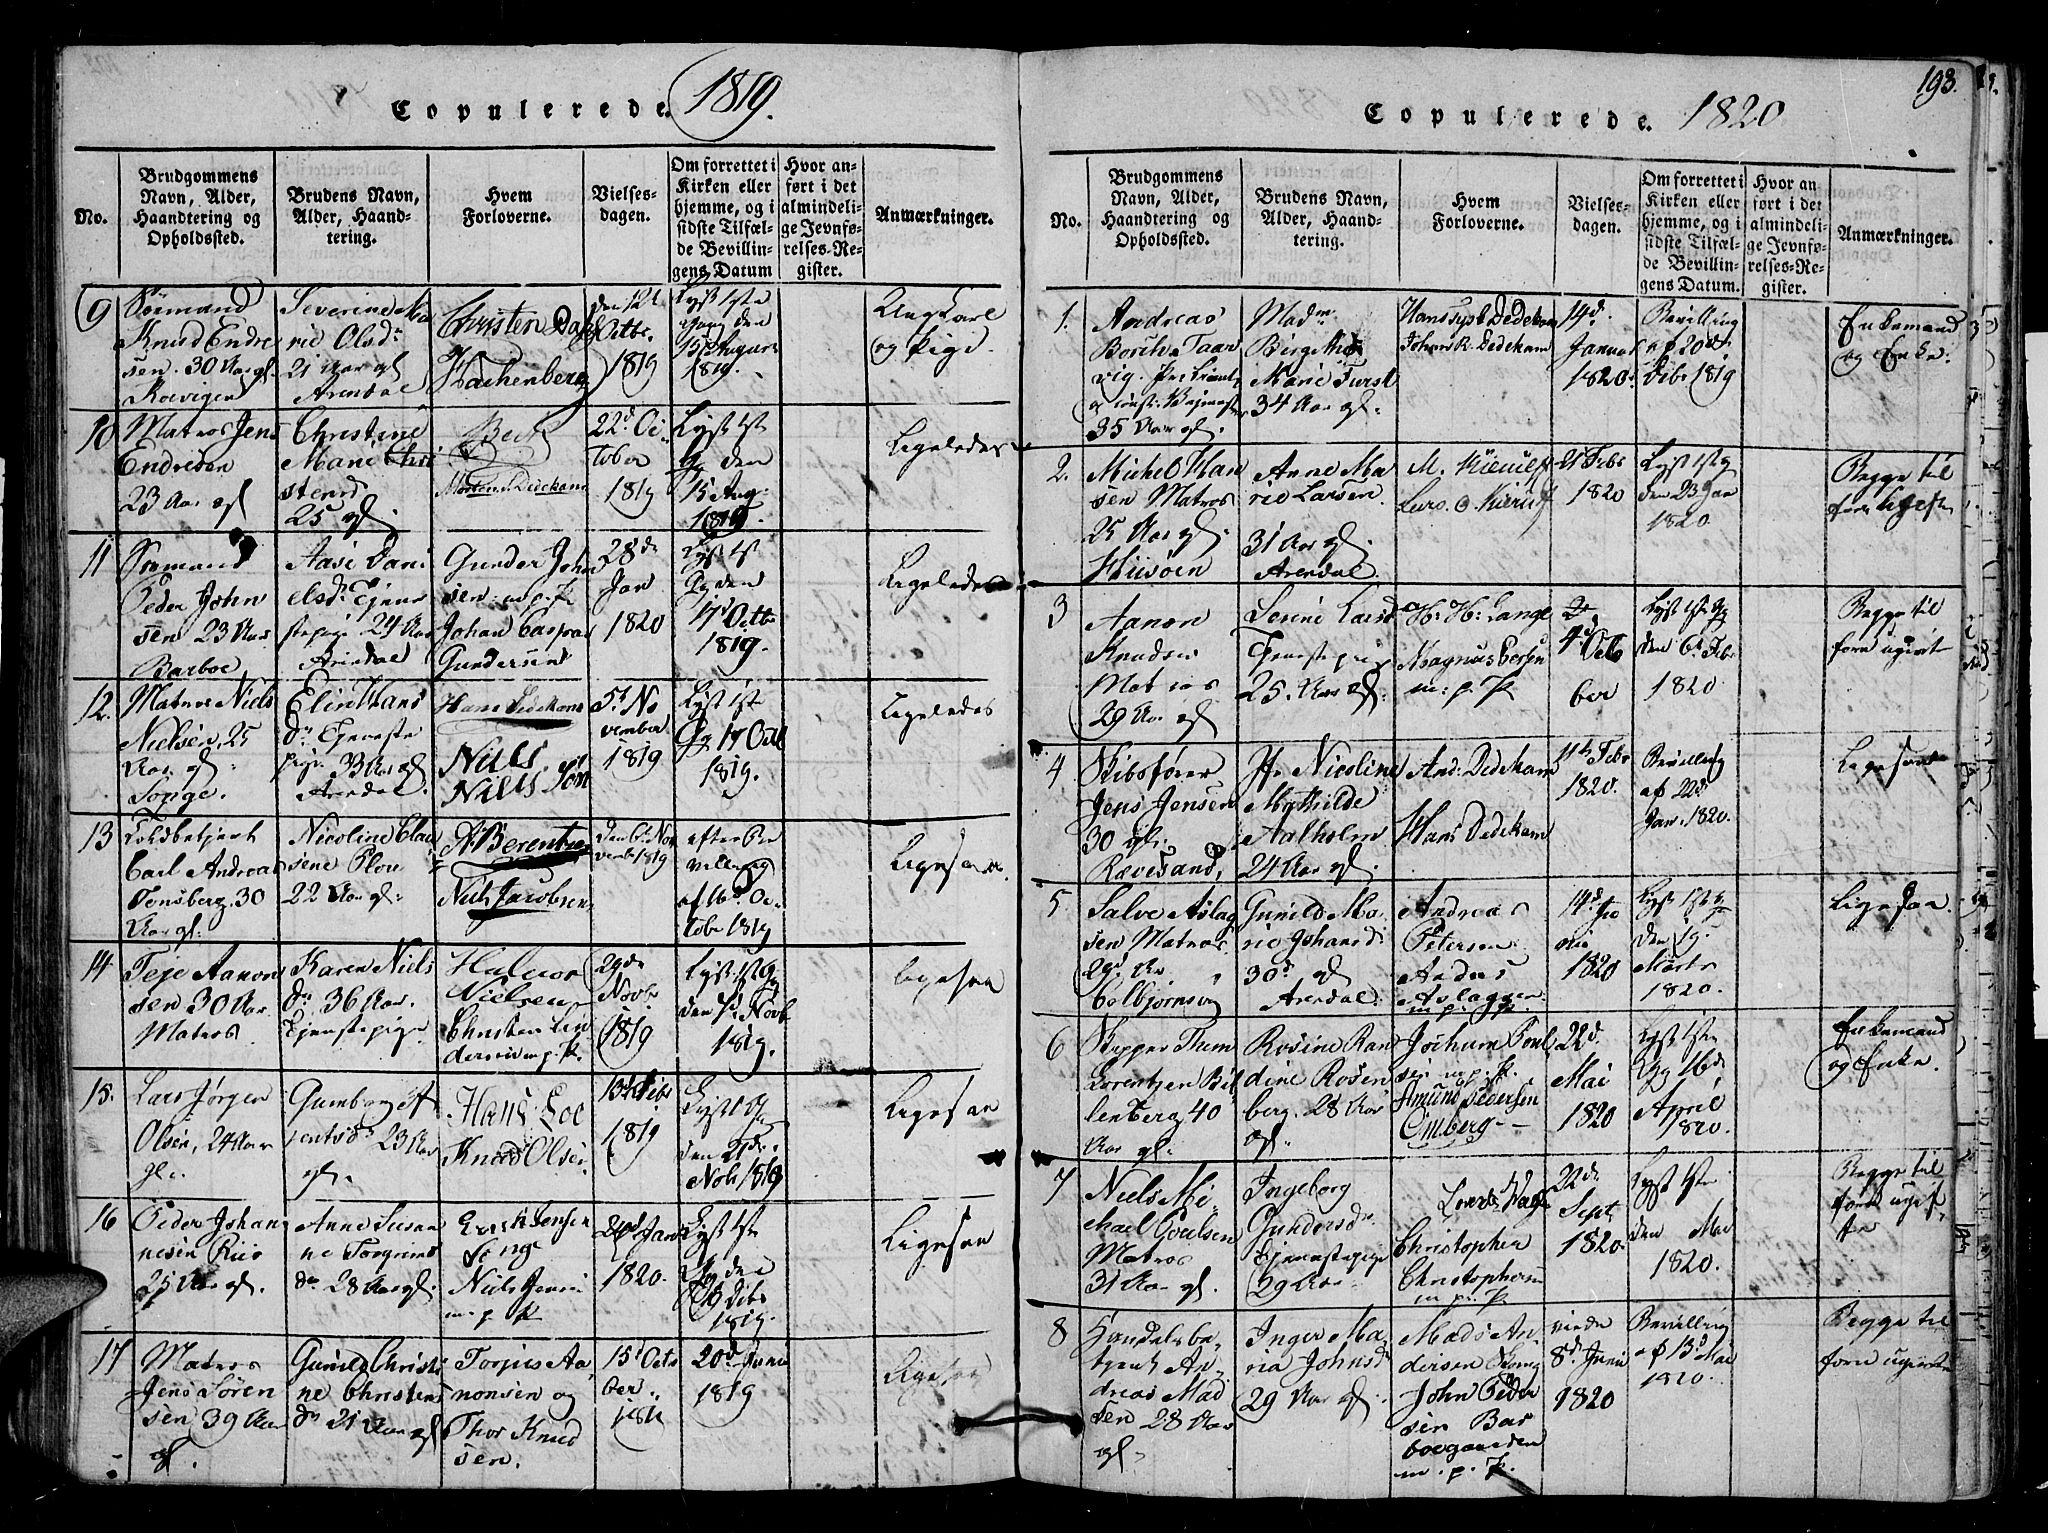 Copulerede. 1819.
No.
Brudgommens
Navn, Alder,
Haandtering og
Opholdssted.
Brudens Navn,
Alder, Haand-
tering.
Hvem
Forloverne.
Vielses-
dagen.
Om forrettet i
Kirken eller
hjemme, og i
sidste Tilfæl-
de Bevillin-
gens Datum
Hvor an-
ført i det
almindeli-
ge Jevnfø-
relses-Re-
gister.
Anmærkninger.
9
Sömand
Knud Endre
sen. 30 Aar gl.
Kolvigen
Severine Ma
rie Olsd.
21 Aar gl
Arendal
Christen Dahl
Hachenberg
den 12t
Octbr.
1819
Lyst 1ste
Gang den
15 August
1819.
Ungkarl
og Pige.
10
Matros Jens
Endresen
23 Aar gl
Christine
Marie Chri
stensd
25 gl.
Beck
Morten Dedekam
22d Oc
tober
1819
Lyst 1ste
Gg den
15 Aug.
1819.
Ligeledes
11
Sömand
Peder John
sen 23 Aar
Barboe
Aase Dani
elsd. Tjene
stepige 24 Aar
Arendal
Gunder John
sen m.p.P.
Johan Caspar
Gundersen
28de
Jan
1820
Lyst 1ste
Gg den
17 Octbr
1819.
Ligeledes
12.
Matros Niels
Nielsen, 25
Aar gl.
Songe.
Elin Hans
dr Tjeneste
pige 33 Aar gl
Arendal.
Hans Dedekam
Niels
Niels Søn
5t No
vember
1819
Lyst 1ste
Gg 17 Oct
1819.
Ligeledes
13
Carl Andreas
Tonsberg. 30
Aar gl.
Nicoline Clau
sene Plou
22 Aar gl.
A. Berentsen
Niels Jacobsen
den 6t Nov
vembr 1819
efter Be
villing
af 16d Oc
tobr 1819
Ligesaa.
14
Teje Aanon
sen 30 Aar.
Matros
Karen Niels
dr 36 Aar.
Tjenestepige
Halvor
Nielsen
Christen Lin
dersen m.p.P.
29de
Novbr
1819
Lyst 1ste Gg
den 7d Novb
1819.
Ligesaa
15.
Lars Jørgen
Olsen, 24 Aar
gl.
Gumborg A
jentsdr 23 Aar
gl.
Hans Loe
Knud Olsen
13t Debr
1819
Lyst 1 Gg
den 21de
Nob 1819
Ligesaa
16
Peder Johan
nesen Riis
25 Aar gl.
Anne Susan
ne Torgrims
dr 28 Aar gl.
Erich Jensen
Niels Jensen
m.p.P.
Janr
1820.
Lyst 1ste
Gg den
Debr
1819.
Ligesaa
17
Matros
Jens Sören
sen 39 Aar
gl.
Gunild Christi
ne Christens
dr 21 Aar gl
Torjus Aa
nonsen og
Thor Knud
sen.
15d Octo
ber.
1819
20d Juni
1819
Ligesaa
193.
Copulerede. 1820
No.
Brudgommens
Navn, Alder,
Haandtering og
Opholdssted.
Brudens Navn,
Alder, Haand-
tering.
Hvem
Forloverne.
Vielses-
dagen.
Om forrettet i
Kirken eller
hjemme, og i
sidste Tilfæl-
de Bevillin-
gens Datum.
Hvor an-
ført i det
almindeli-
ge Jevnfø-
relses-Re-
gister.
Anmærkninger.
1.
Andreas
Borch Taar
vig.
35 Aar gl.
Madm
Birgethe
Marie Furst
34 Aar gl.
Hans Just Dedekam
Johan R. Dedekam
14d.
Januar
1820.
Bevilling
af 20de
Debr 1819
Enkemand
og Enke.
2.
Michel Han
sen Matros
25 Aar gl.
Hiisöen
Anne Ma
rie Larsen
31 Aar gl.
Arendal
M. Kierulf
Lars O. Kierulf
21 Febr
1820
Lyst 1ste g
den 23 Jan
1820.
Begge til
forn Ugifte
3
Aanon
Knudsen
Matros
29 Aar gl
Serine Larsd
Tjenestepige
25. Aar gl.
H. H. Lange
Magnus Bersen
m. p. P.
4d Octo
ber
Lyst 1ste Gg
den 6t Febr
1820
Begge til
forn ugift
4
Skibsfører
Jens Jensen
30 gl.
Rævesand,
Jfr Nicoline
Mathilde
Aalholm
24 Aar gl.
And: Dedekam
Hans Dedekam
11te Febr
1820.
Bevilling
af 22d
Jan. 1820.
Ligesaa
5
Salve Aslag
sen Matros
29 Aar
Colbjørnsvig
Gunild Ma
rie Johansd
30 gl
Arendal.
Andreas
Petersen
Anders
Aslaggen
m.p.P.
14d
1820
Lyst 1ste g
den 19
Marts
1820.
Ligesaa.
6
Skipper Thom
Lorentzen Bil
lenberg. 40
Aar gl.
Rosine Ran
dine Rosen
berg. 28 Aar
gl.
Jochum Poul
sen m.p.P.
Amund Pedersen
Omberg
22d.
Mai
1820
Lyst 1ste
Gg 16d
April
1820.
Enkemand
og Enke.
7
Niels Mi
chael Poulsen
Matros
31 Aar gl.
Ingeborg
Gundersdr
Tjenestepige
29 Aar
Christopher
Christophersen
m. p. P.
22d.
Sept.
1820.
Lyst 1ste
den Mai
1820.
Begge til
forn ugif
te
8
Handelsbe
tjent An
dreas Mad
sen 28 Aar
gl.
Inger Ma
ria Johnsd
29 Aar gl.
Mads An
dersen
John Peder
sen Bar
boegaarden
m. p. P.
8d. Junii
1820
Bevilling
af 13d Mai
1820.
Begge til
forn ugifte